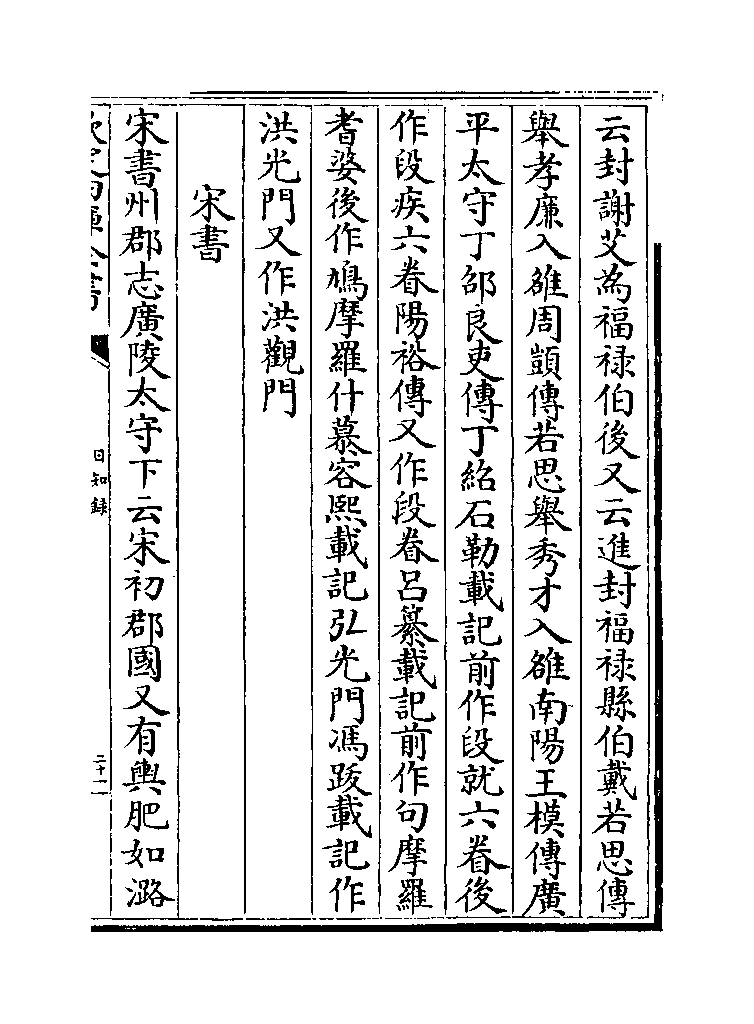 云封謝艾為福禄伯後又云進封福禄縣伯戴若思傳
舉孝廉入雒周顗傳若思舉秀才入雒南陽王模傳廣
平太守丁邵良吏傳丁紹石勒載記前作段就六眷後
作段疾六眷陽裕傳又作段眷呂纂載記前作句摩羅
耆婆後作鳩摩羅什慕容熙載記弘光門馮跋載記作
洪光門又作洪觀門
宋書
宋書州郡志廣陵太守下云宋初郡國又有輿肥如潞
日知錄
二十一